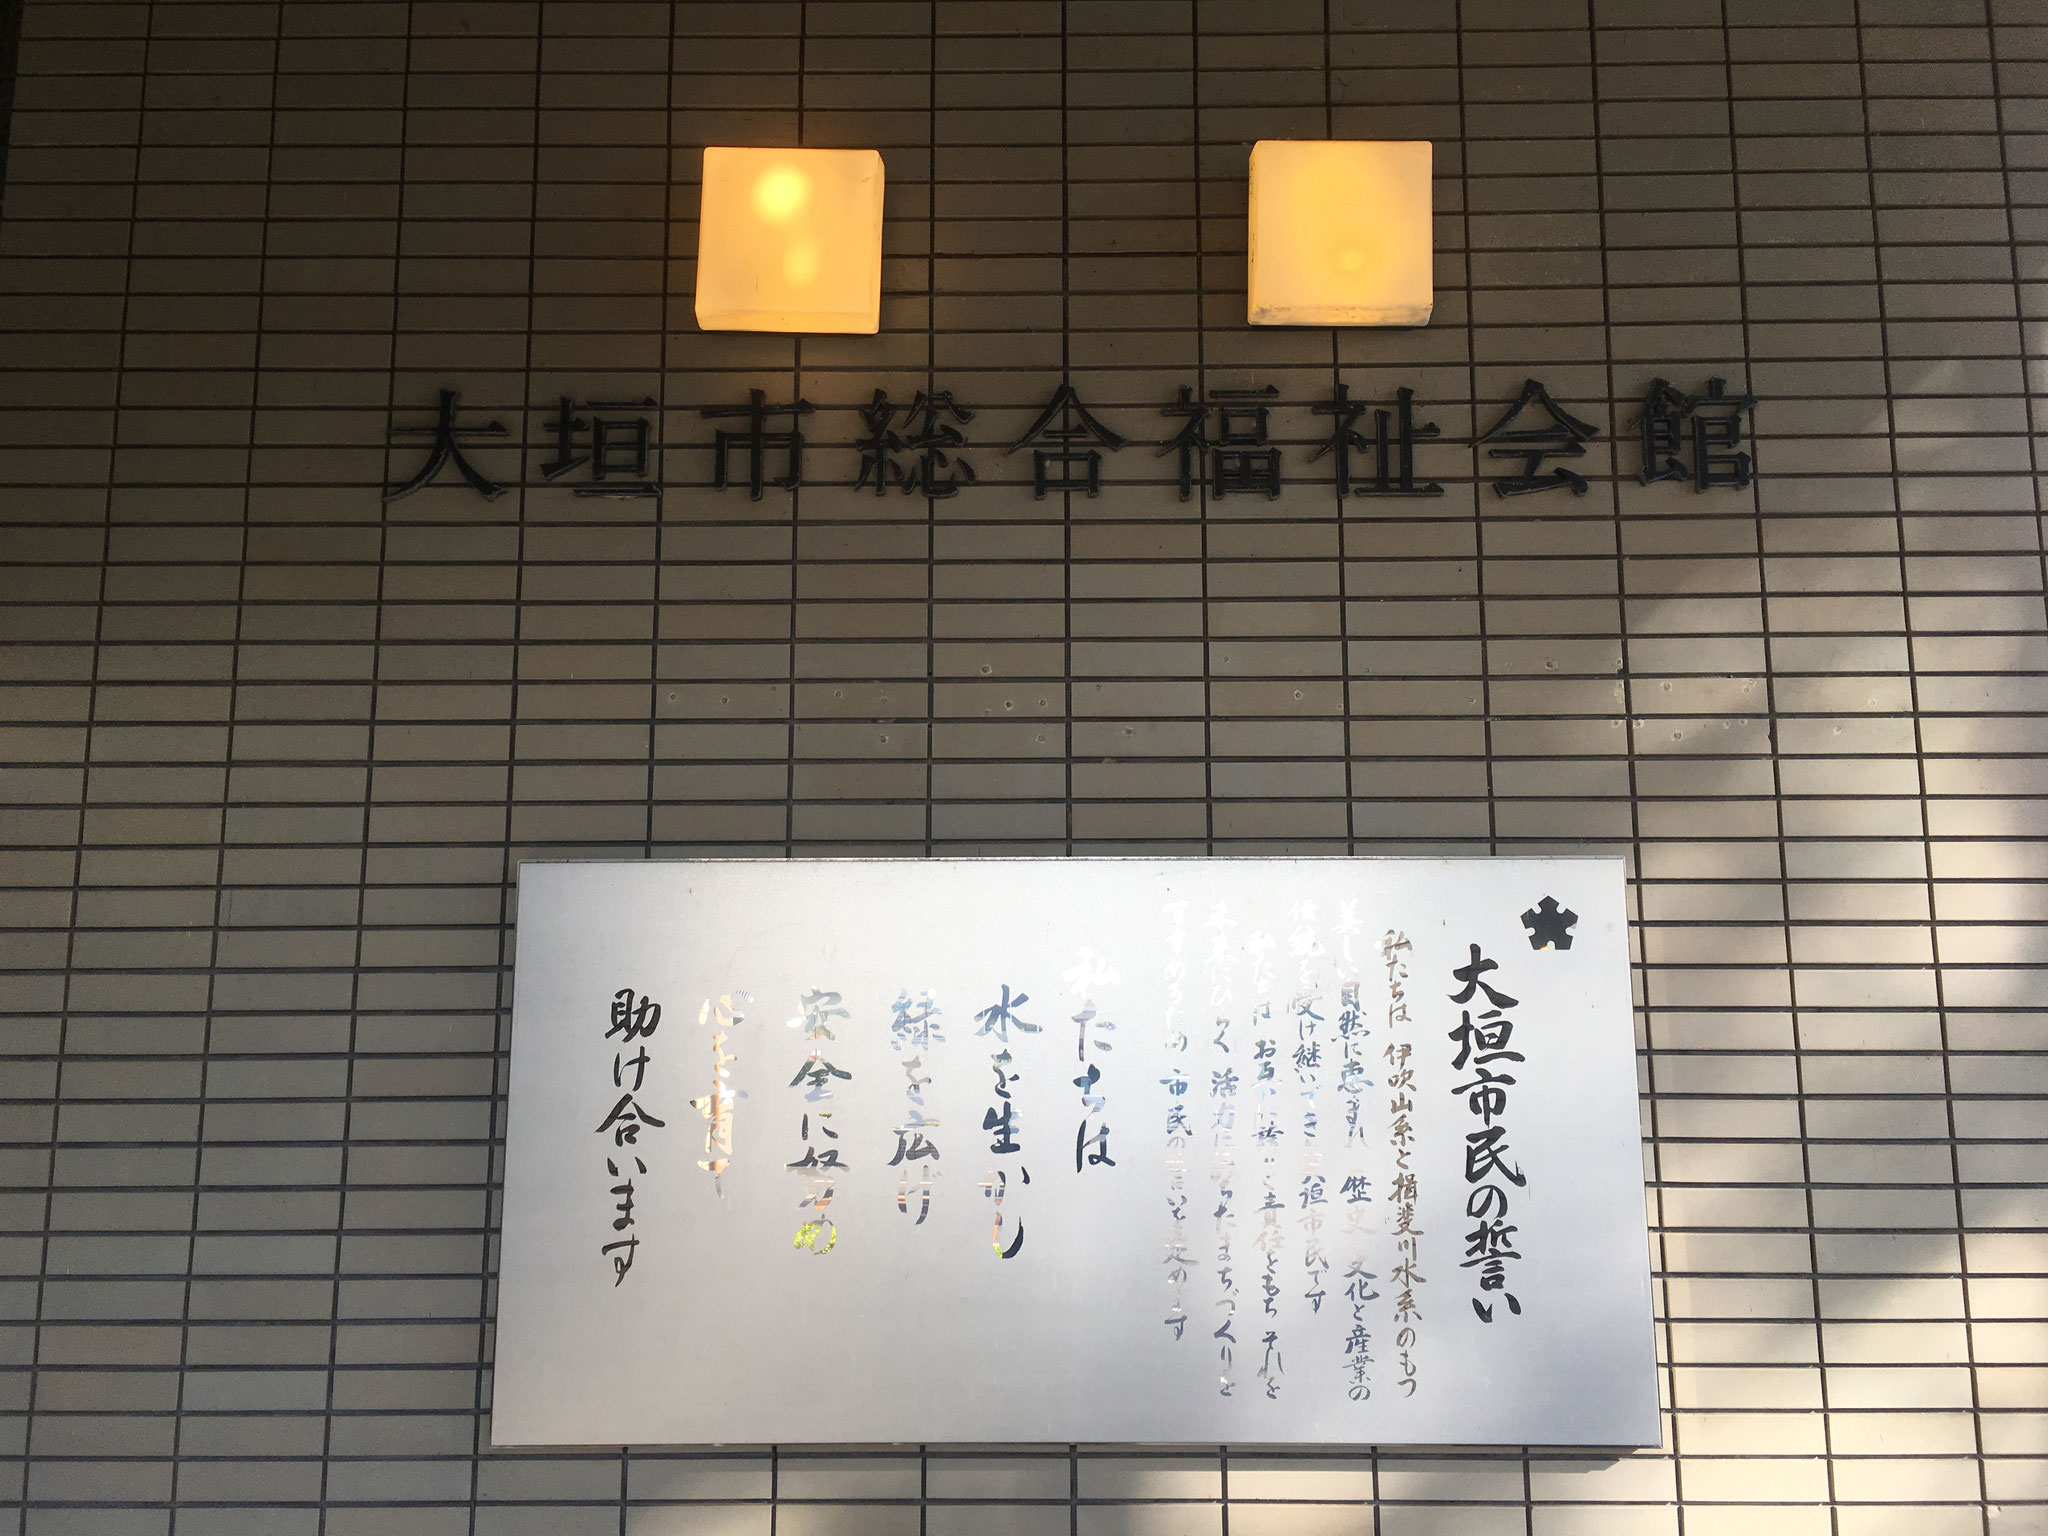 大垣市総合福祉会館
大垣市民の誓い
私たちは 伊吹山系と揖斐川水系のもつ
美しい自然に恵まれ 歴史と文化と産業の
伝統を受け継いできた大垣市民です
私たちは お互いに誇りと責任をもち それを
未来にひらく 活力にみちたまちづくりを
すすめるため 市民の誓いを定めます
私たちは
水を生かし
緑を広げ
安全に努め
心を育て
助け合います